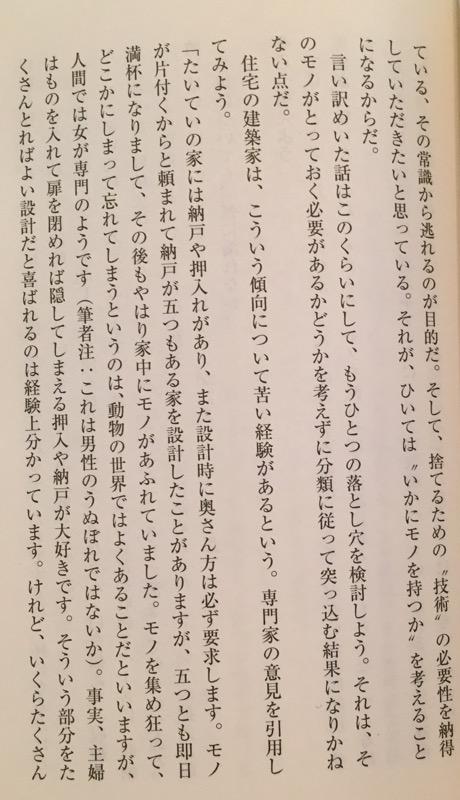 ている、その常識から逃れるのが目的だ。そして、捨てるための〝技術〟の必要性を納得
していただきたいと思っている。それが、ひいては〝いかにモノを持つか〟を考えること
になるからだ。
言い訳めいた話はこのくらいにして、もうひとつの落とし穴を検討しよう。それは、そ
のモノがとっておく必要があるかどうかを考えずに分類に従って突っ込む結果になりかね
ない点だ。
住宅の建築家は、こういう傾向について苦い経験があるという。専門家の意見を引用し
てみよう。
「たいていの家には納戸や押入れがあり、また設計時に奥さん方は必ず要求します。モノ
が片付くからと頼まれて納戸が五つもある家を設計したことがありますが、五つとも即日
満杯になりまして、その後もやはり家中にモノがあふれていました。モノを集め狂って、
どこかにしまって忘れてしまうというのは、動物の世界ではよくあることだといいますが、
人間では女が専門のようです（筆者注：これは男性のうぬぼれではないか）。事実、主婦
はものを入れて扉を閉めれば隠してしまえる押入や納戸が大好きです。そういう部分をた
くさんとればよい設計だと喜ばれるのは経験上分かっています。けれど、いくらたくさん